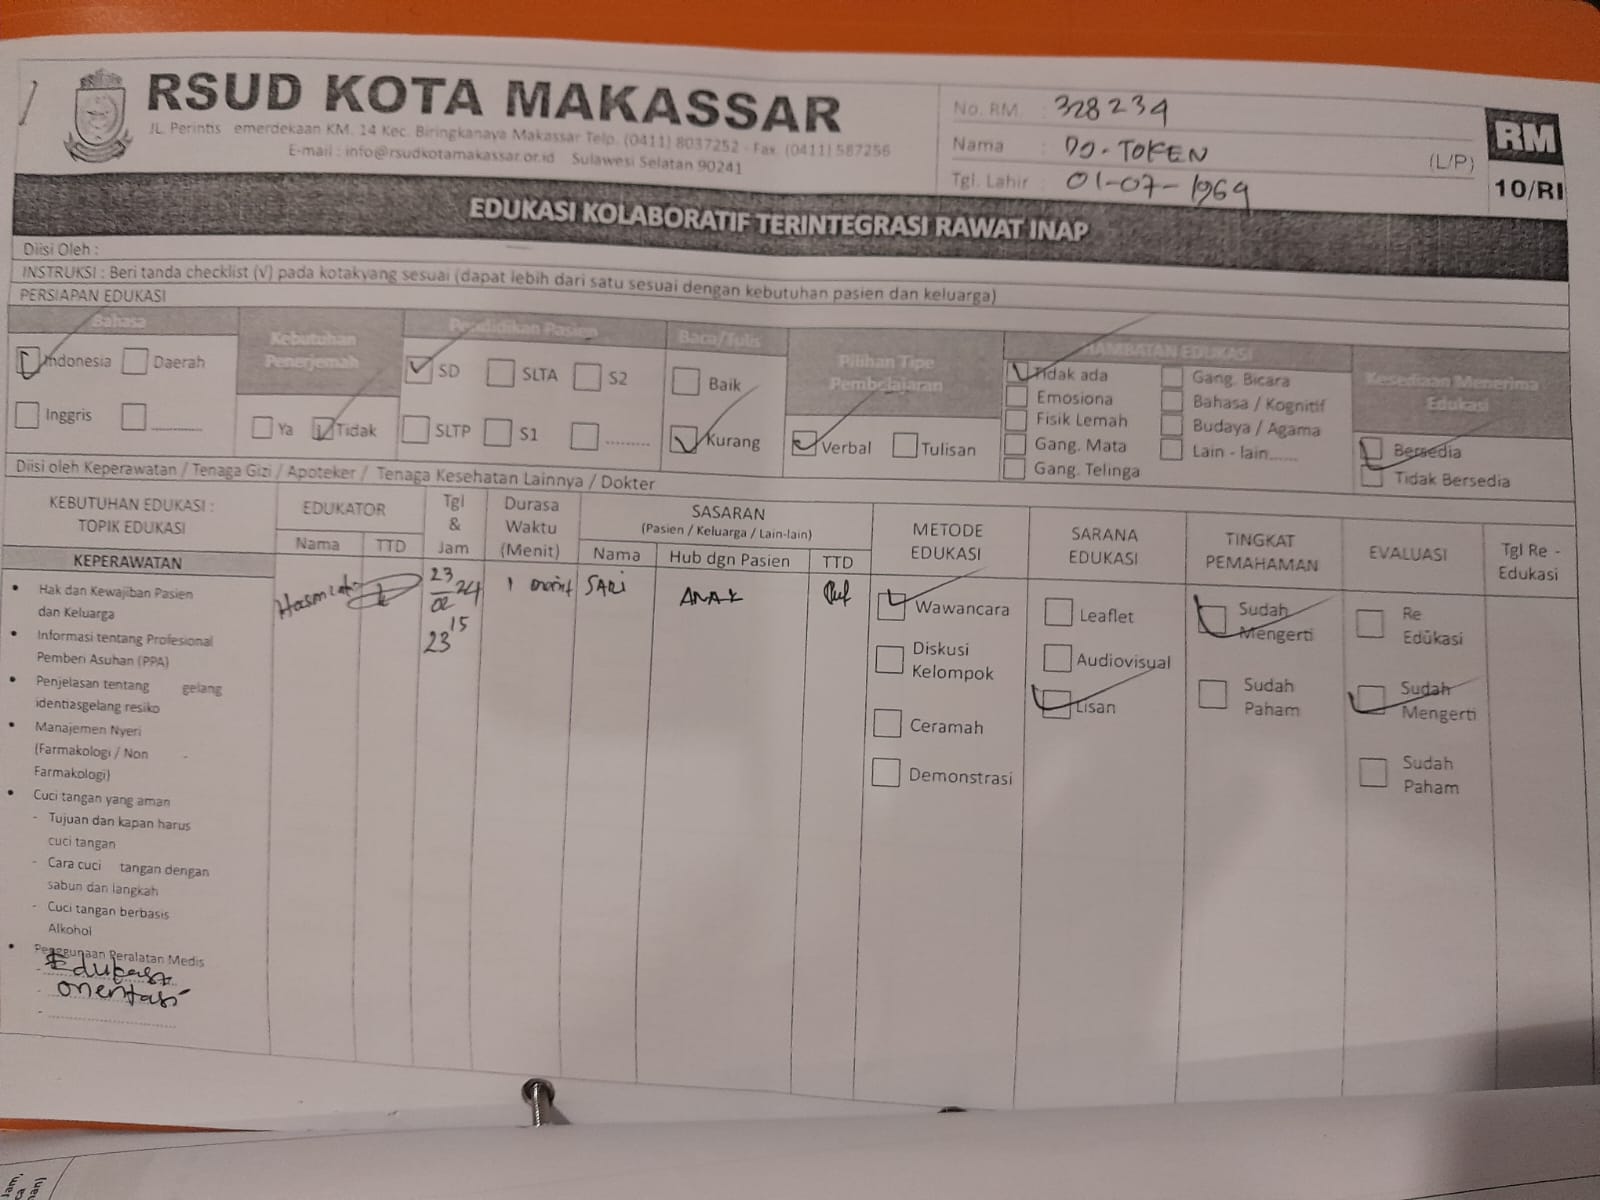 RSUD KOTA MAKASSAR
JL. Perintis emerdekaan KM. 14 Kec. Biringkanaya Makassar Telp. (0411) 8037252 - Fax. (0411) 587256
E-mail : info@rsudkotamakassar.or.id Sulawesi Selatan 90241
No. RM. : 328239
Nama : DO-TOKEN (L/P)
Tgl. Lahir : 01-07-1969
RM
10/RI
EDUKASI KOLABORATIF TERINTEGRASI RAWAT INAP
Diisi Oleh :
INSTRUKSI : Beri tanda checklist (√) pada kotakyang sesuai (dapat lebih dari satu sesuai dengan kebutuhan pasien dan keluarga)
PERSIAPAN EDUKASI
Bahasa
Indonesia Daerah
Inggris ............
Kebutuhan
Penerjemah
Ya Tidak
Pendidikan Pasien
SD SLTA S2
SLTP S1 .........
Baca/Tulis
Baik
Kurang
Pilihan Tipe
Pembelajaran
Verbal Tulisan
HAMBATAN EDUKASI
Tidak ada Gang. Bicara
Emosiona Bahasa / Kognitif
Fisik Lemah Budaya / Agama
Gang. Mata Lain - lain......
Gang. Telinga
Kesediaan Menerima
Edukasi
Bersedia
Tidak Bersedia
Diisi oleh Keperawatan / Tenaga Gizi / Apoteker / Tenaga Kesehatan Lainnya / Dokter
KEBUTUHAN EDUKASI :
TOPIK EDUKASI
EDUKATOR
Nama TTD
Tgl
&
Jam
Durasa
Waktu
(Menit)
SASARAN
(Pasien / Keluarga / Lain-lain)
Nama Hub dgn Pasien TTD
METODE
EDUKASI
SARANA
EDUKASI
TINGKAT
PEMAHAMAN
EVALUASI
Tgl Re -
Edukasi
KEPERAWATAN
• Hak dan Kewajiban Pasien
dan Keluarga
• Informasi tentang Profesional
Pemberi Asuhan (PPA)
• Penjelasan tentang gelang
identiasgelang resiko
• Manajemen Nyeri
(Farmakologi / Non -
Farmakologi)
• Cuci tangan yang aman
- Tujuan dan kapan harus
cuci tangan
- Cara cuci tangan dengan
sabun dan langkah
- Cuci tangan berbasis
Alkohol
• Penggunaan Peralatan Medis
- Edukasi
- orientasi
- ........................
23/02 24
23 15
SARi
ANAK
Wawancara
Diskusi
Kelompok
Ceramah
Demonstrasi
Leaflet
Audiovisual
Lisan
Sudah
Mengerti
Sudah
Paham
Re
Edukasi
Sudah
Mengerti
Sudah
Paham